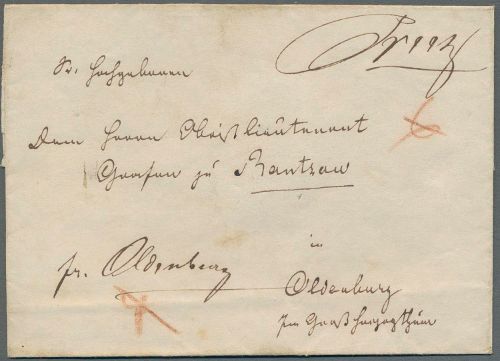 Preetz
Sr. Hochgeboren
Dem Herrn Obristlieutenant
6
Grafen zu Rantzau
in
fr. Oldenburg
Oldenburg
Im Großherzogthum